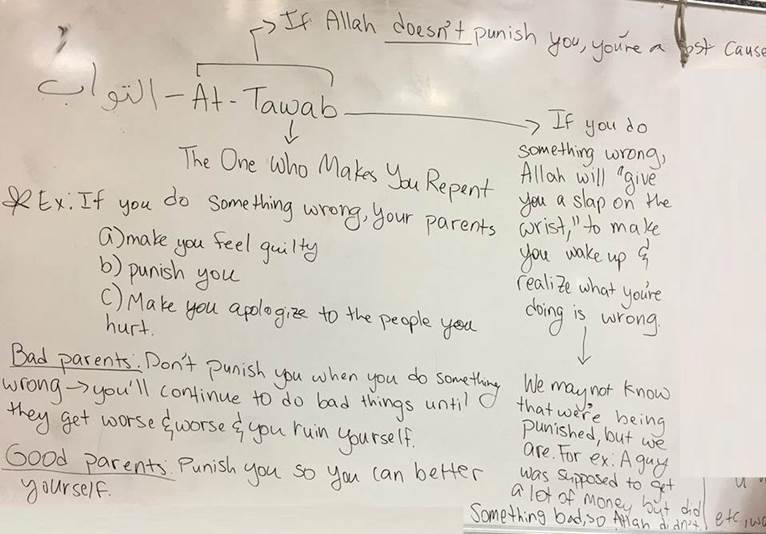 If Allah doesn't punish you, you're a ost cause
التواب - At-Tawab
The One Who Makes You Repent
Ex: If you do something wrong, your parents
a) make you feel guilty
b) punish you
c) Make you apologize to the people you
hurt.
Bad parents: Don't punish you when you do something
wrong → you'll continue to do bad things until
they get worse & worse & you ruin yourself.
Good parents: Punish you so you can better
yourself.
If you do
something wrong,
Allah will "give
you a slap on the
wrist," to make
you wake up &
realize what you're
doing is wrong.
We may not know
that we're being
punished, but we
are. For ex: A guy
was supposed to get
a lot of money but did
something bad, so Allah didn't
etc,